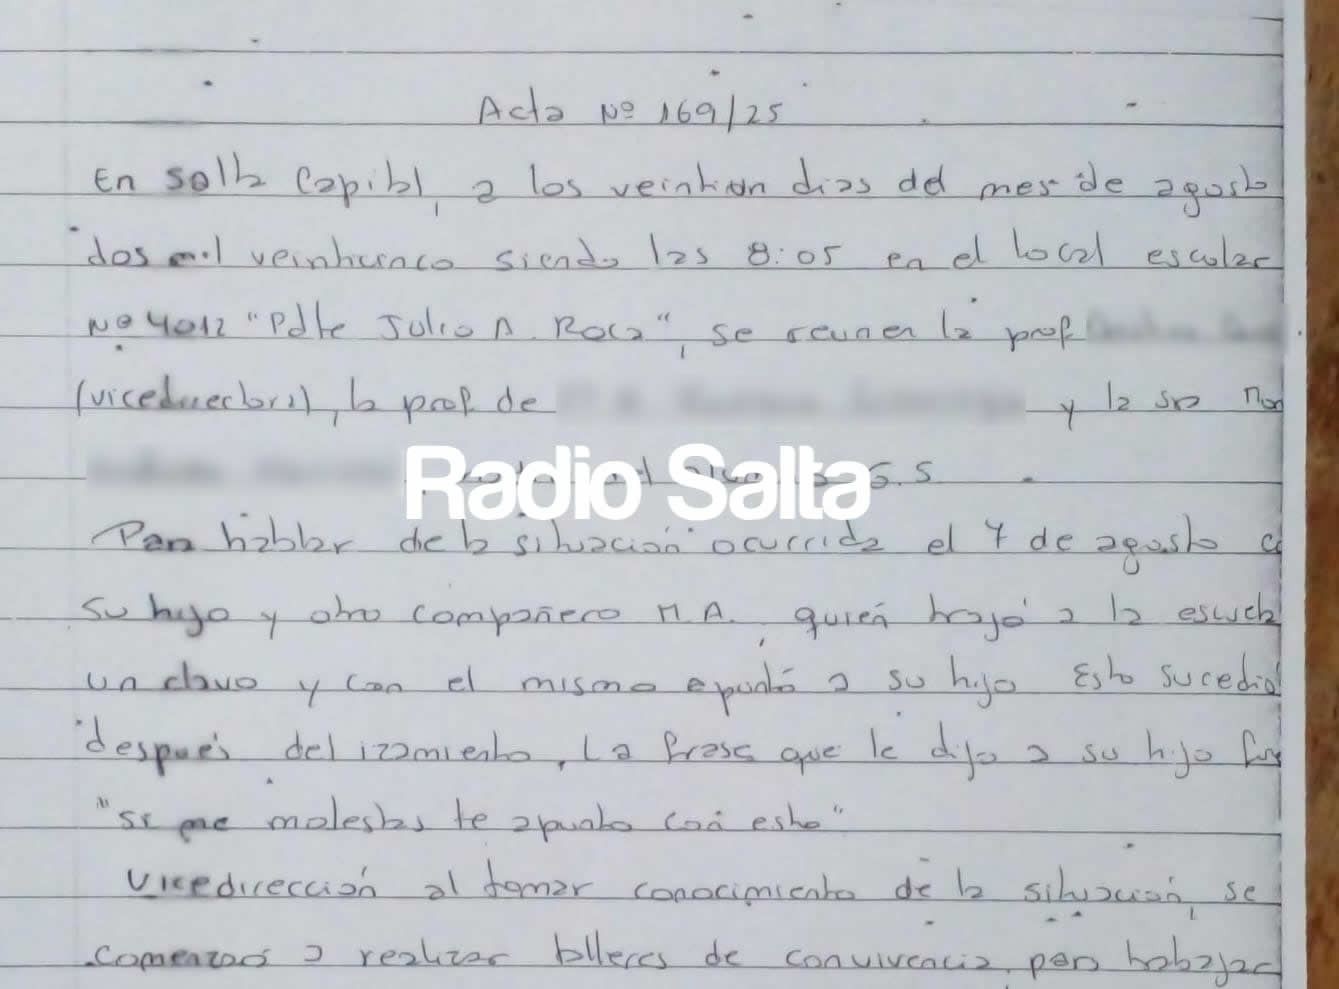 Acta Nº 169/25
En Salta Capital, a los veintiun dias del mes de agosto
dos mil veinticinco siendo las 8:05 en el local escolar
Nº 4012 "Pdte Julio A. Roca", se reunen la prof
(vicedirectora), la prof. de y la sra
Radio Salta S. S.
Para hablar de la situación ocurrida el 7 de agosto
su hijo y otro compañero M.A. quien trajo a la escuela
un clavo y con el mismo apuntó a su hijo Esto sucedió
después del izamiento, La frase que le dijo a su hijo fue
"si me molestas te apunto con esto"
Vicedirección al tomar conocimiento de la situación, se
comenzará a realizar talleres de convivencia, para trabajar